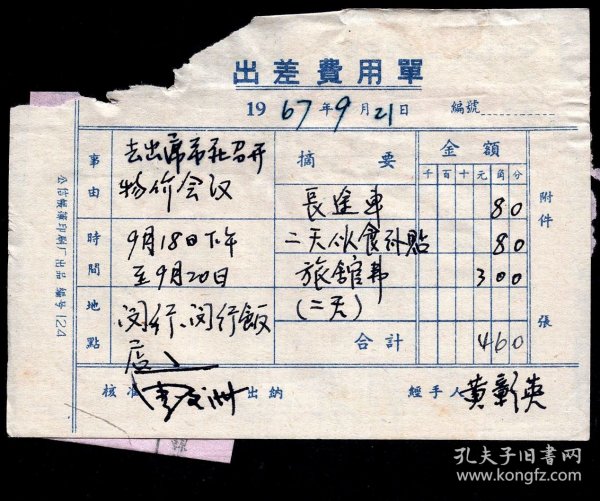 出差費用單
1967年9月21日 編號
事由 去出席市社召开
物价会议
時間 9月18日下午
至9月20日
地點 闵行、闵行飯
店
摘要 金額
千百十元角分
長途車 80
二天伙食补貼 80
旅館費 300
(二天)
合計 460
附件 張
核准 出納 經手人 黄彰英
公信帳簿印刷厂出品 編号124
孔夫子旧书网
www.kongfz.com